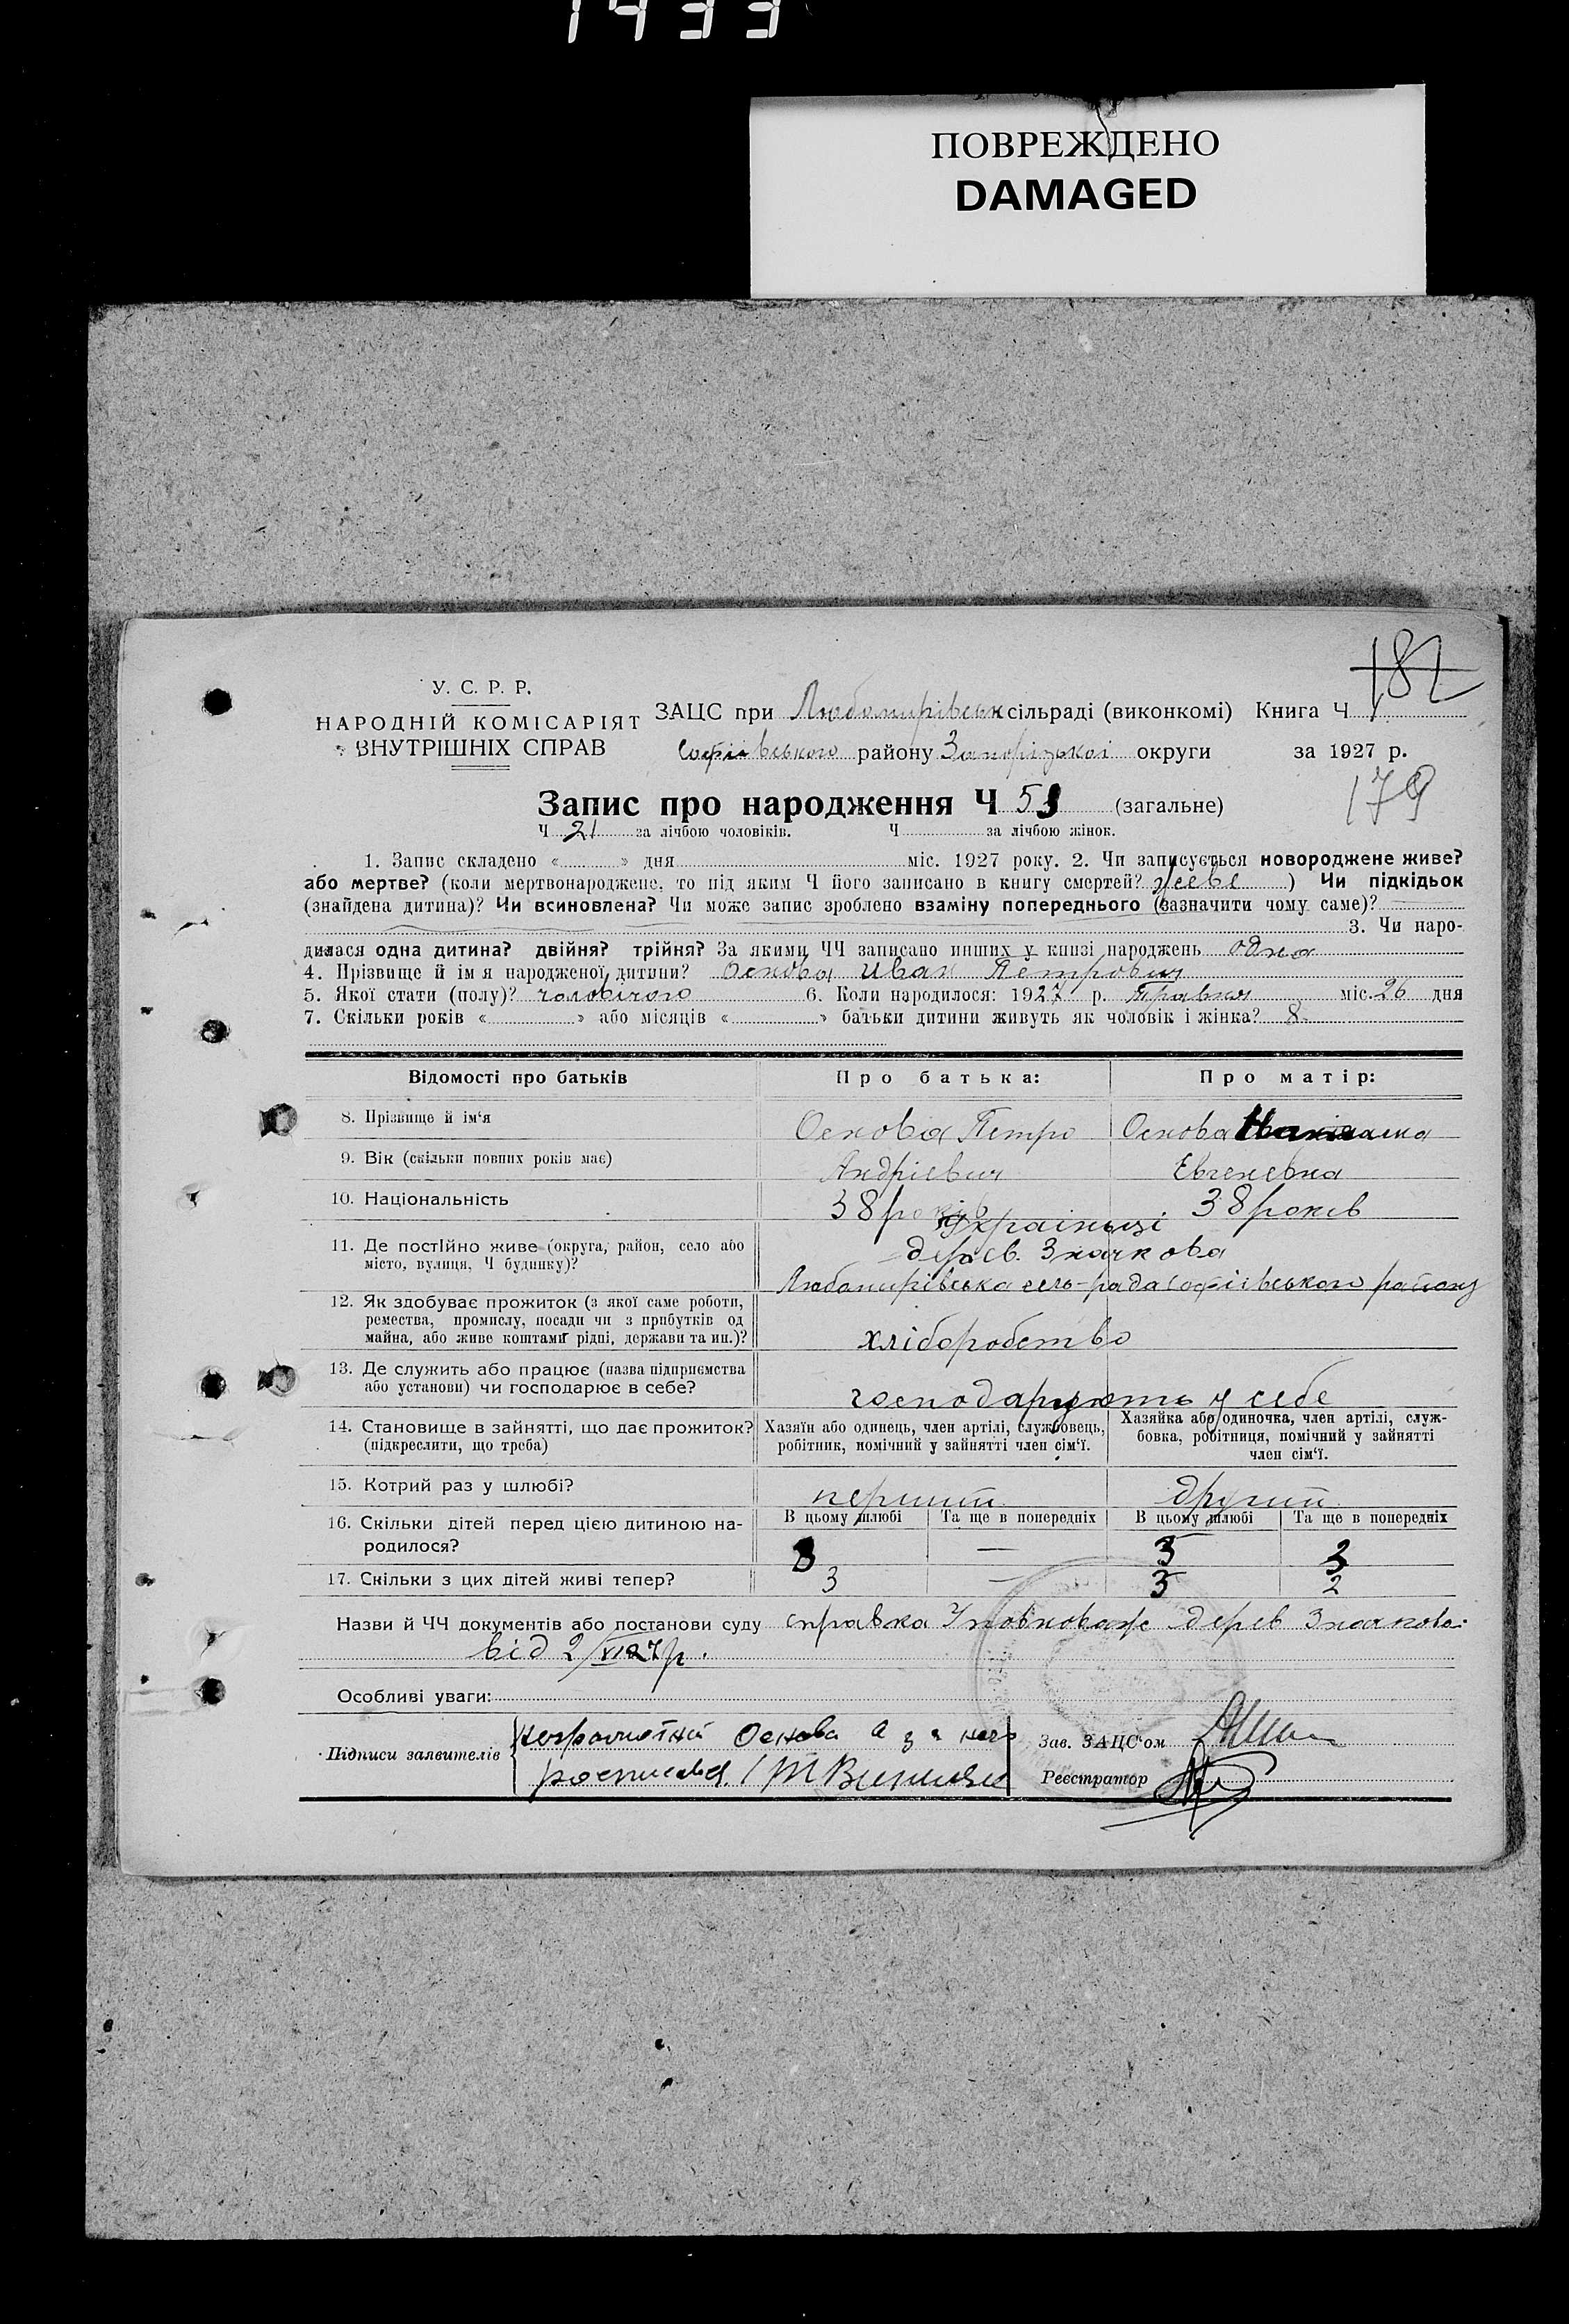 1433
ПОВРЕЖДЕНО
DAMAGED
182
У. С. Р. Р.
НАРОДНІЙ КОМІСАРІЯТ
ВНУТРІШНІХ СПРАВ
ЗАЦС при Любомирівськ сільраді (виконкомі) Книга Ч
Софіївського району Запорізької округи за 1927 р.
179
Запис про народження Ч 53 (загальне)
Ч 21 за лічбою чоловіків. Ч за лічбою жінок.
1. Запис складено « » дня міс. 1927 року. 2. Чи записується новороджене живе?
або мертве? (коли мертвонароджене, то під яким Ч його записано в книгу смертей? живе ) Чи підкідьок
(знайдена дитина)? Чи всиновлена? Чи може запис зроблено взаміну попереднього (зазначити чому саме)?
3. Чи наро-
дилася одна дитина? двійня? трійня? За якими ЧЧ записано инших у книзі народжень одна
4. Прізвище й ім я народженої дитини? Основа Иван Петрович
5. Якої стати (полу)? чоловічого 6. Коли народилося: 1927 р. Травня міс. 26 дня
7. Скільки років « » або місяців « » батьки дитини живуть як чоловік і жінка? 8
Відомості про батьків Про батька: Про матір:
8. Прізвище й ім‘я Основа Петро Основа
9. Вік (скільки повних років має) Андрієвич Евгеневна
10. Національність 38 років 38 років
Українці
11. Де постІйно живе (округа, район, село або
місто, вулиця, Ч будинку)?
дерев. Значкова
Любомирівська сель-рада Софіївського району
12. Як здобуває прожиток (з якої саме роботи,
ремества, промислу, посади чи з прибутків од
майна, або живе коштами рідні, держави та ин.)?
хліборобство
13. Де служить або працює (назва підприємства
або установи) чи господарює в себе?
господарують у себе
14. Становище в зайнятті, що дає прожиток?
(підкреслити, що треба)
Хазяїн або одинець, член артілі, службовець,
робітник, помічний у зайнятті член сім‘ї.
Хазяйка або одиночка, член артілі, служ-
бовка, робітниця, помічний у зайнятті
член сім‘ї.
15. Котрий раз у шлюбі? перший другий
16. Скільки дітей перед цією дитиною на-
родилося?
В цьому шлюбі Та ще в попередніх В цьому шлюбі Та ще в попередніх
3 — 3
17. Скільки з цих дітей живі тепер? 3 — 3 2
Назви й ЧЧ документів або постанови суду справка Уповноваж дерев Значкова
від 2/VI 27 р.
Особливі уваги:
Підписи заявителів Основа а за него
росписався
Зав. ЗАЦС‘ом
Реєстратор